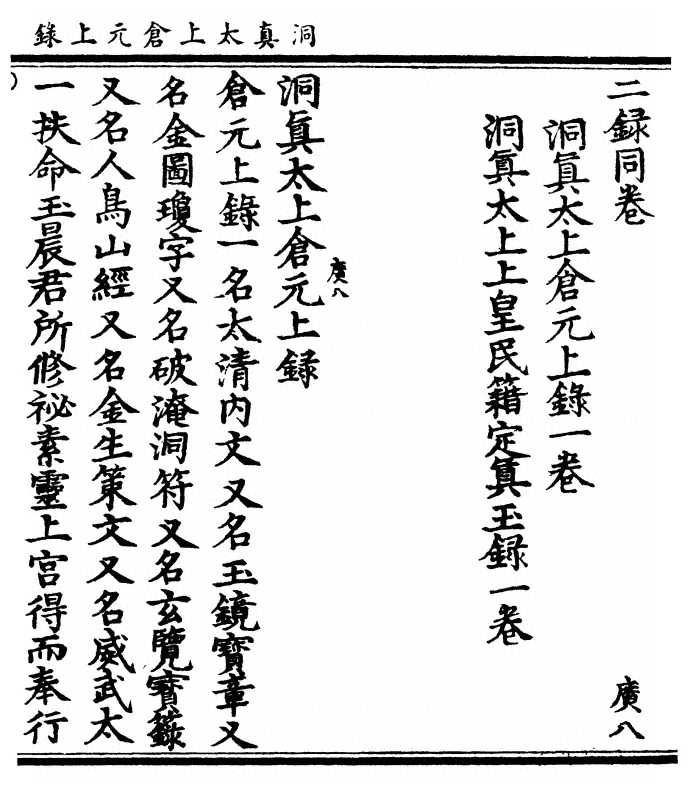 洞真太上倉元上錄
二録同卷
廣八
洞真太上倉元上錄一卷
洞真太上上皇民籍定真玉録一卷
洞真太上倉元上録
廣八
倉元上錄一名太清内文又名玉鏡寶章又
名金圖瓊字又名破淹洞符又名玄覽寶籙
又名人鳥山經又名金生策文又名威武太
一扶命玉晨君所修祕素靈上宮得而奉行